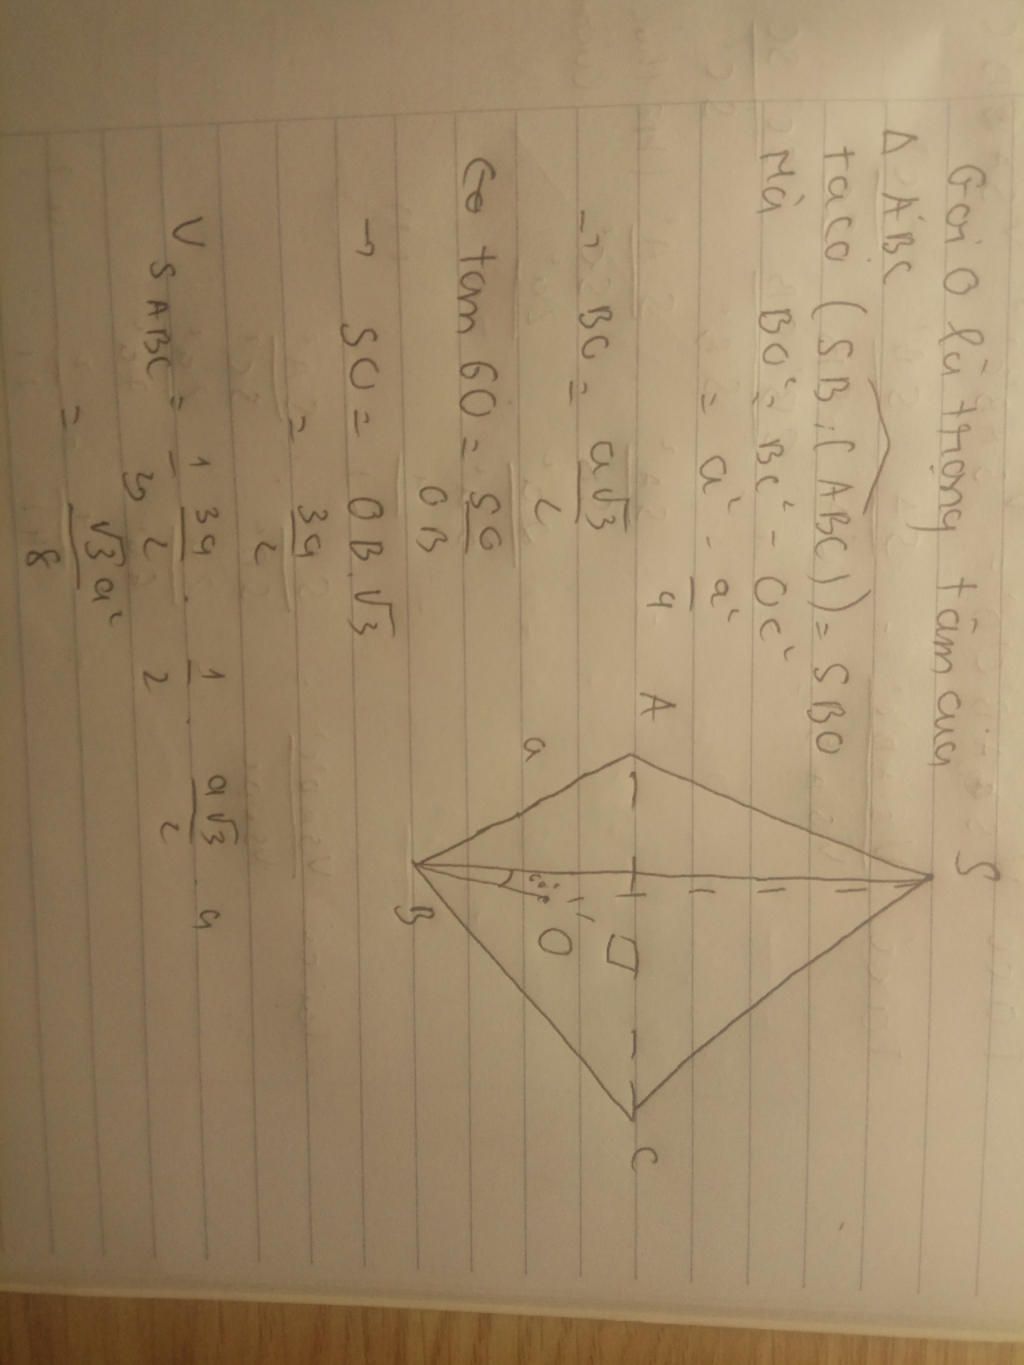 Gọi O là trọng tâm của
Δ ABC
ta có (SB, (ABC)) = SBO
Mà BO² = BC² - OC²
= a² - a²/4
→ BO = a√3/2
Có tan 60 = SO/OB
→ SO = OB.√3
= 3a/2
V SABC = 1/3 3a/2 . 1/2 . a√3/2 . a
= √3a²/8
S
A
a
60°
O
B
C